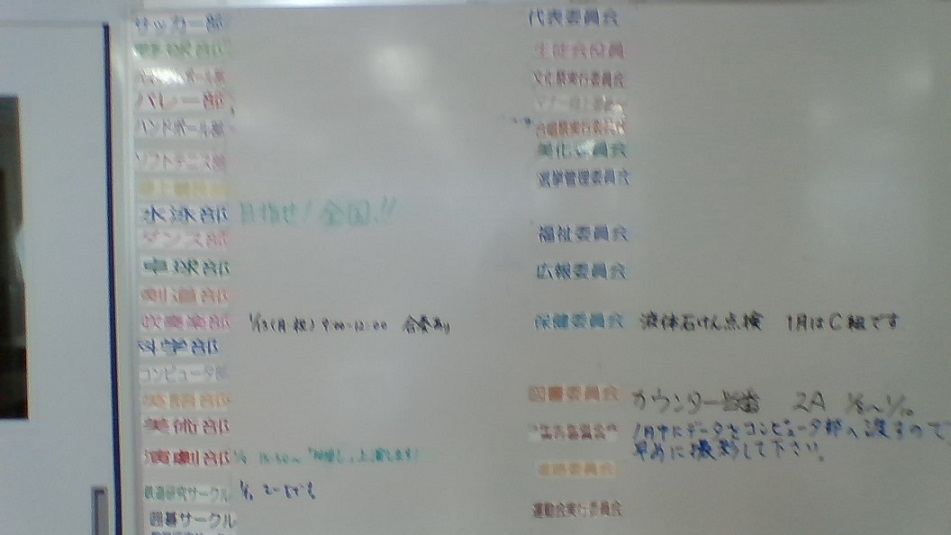 サッカー部
野球部
バレー部
ハンドボール部
ソフトテニス部
陸上競技部
水泳部 目指せ!全国!!
ダンス部
卓球部
剣道部
吹奏楽部 1/13(月・祝) 9:00-12:00 合奏あり
科学部
コンピュータ部
英語部
美術部
演劇部 上演します!
鉄道研究サークル
囲碁サークル
代表委員会
生徒会役員
文化祭実行委員会
合唱祭実行委員会
美化委員会
選挙管理委員会
福祉委員会
広報委員会
保健委員会 液体石けん点検 1月はC組です
図書委員会 カウンター当番 2A 1/8~1/10
1月中にデータをコンピュータ部へ渡すので
早めに撮影して下さい。
進路委員会
運動会実行委員会